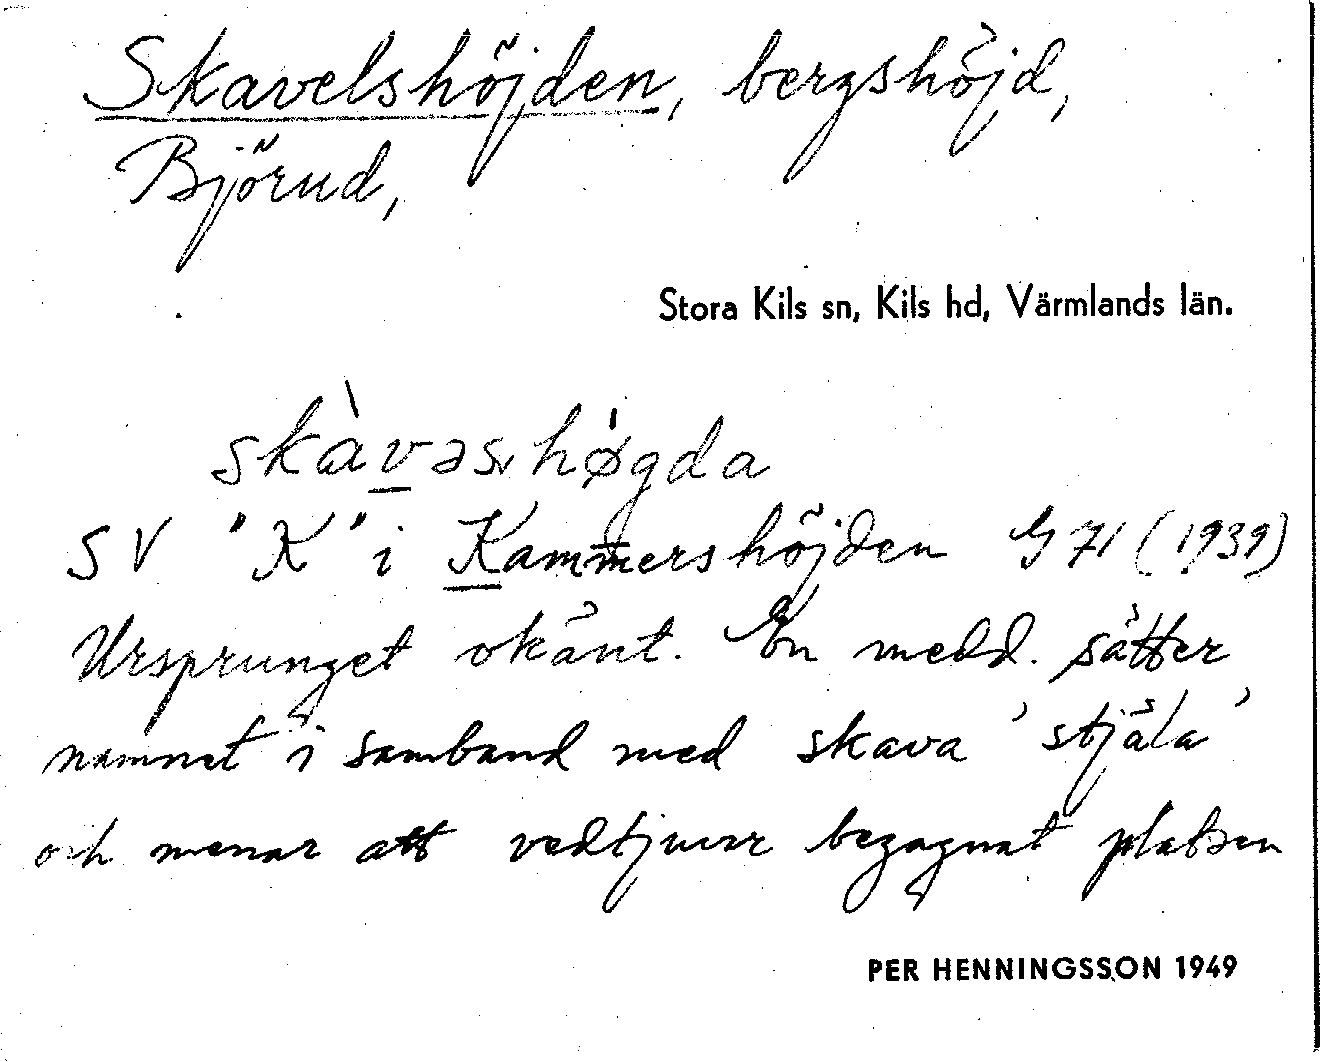 Skavelshöjden, bergshöjd,
Björud,
Stora Kils sn, Kils hd, Värmlands län.
skàvəsˌhøgda
SV "K" i Kammershöjden G 71 (1939)
Ursprunget okänt. En medd. sätter
namnet i samband med skava 'stjäla'
och menar att vedtjuvar begagnat platsen
PER HENNINGSSON 1949